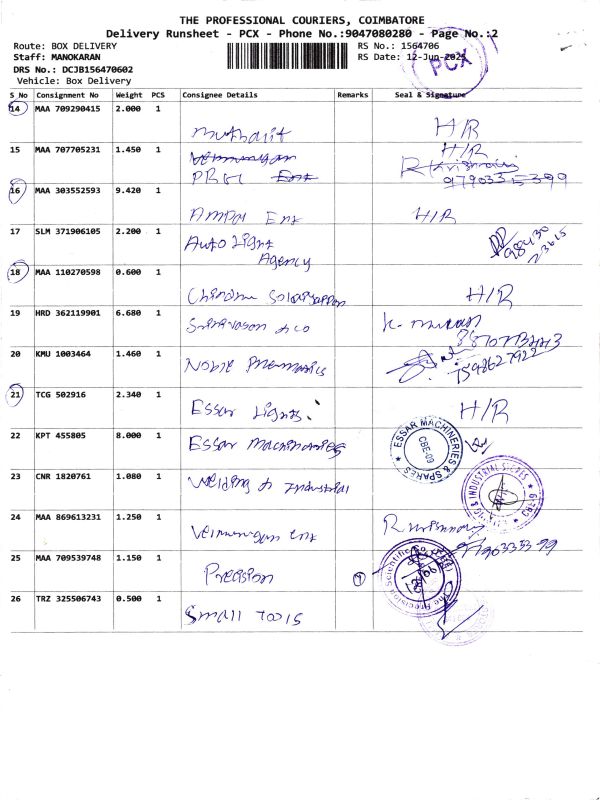 THE PROFESSIONAL COURIERS, COIMBATORE
Delivery Runsheet - PCX - Phone No.:9047080280 - Page No.:2
Route: BOX DELIVERY
RS No.: 1564706
Staff: MANOKARAN
RS Date: 12-Jun-2025
PCX
DRS No.: DCJB156470602
Vehicle: Box Delivery
S No Consignment No Weight PCS Consignee Details Remarks Seal & Signature
14 MAA 709290415 2.000 1 H/R
15 MAA 707705231 1.450 1 H/R
9790335399
16 MAA 303552593 9.420 1 Ampal Ent H/R
17 SLM 371906105 2.200 1 Auto Light
Agency
18 MAA 110270598 0.600 1 H/R
19 HRD 362119901 6.680 1 Srinivason & co
20 KMU 1003464 1.460 1 Noble Pneumatics
7598627922
21 TCG 502916 2.340 1 Essar Lights. H/R
22 KPT 455805 8.000 1 Essar Machineries
ESSAR MACHINERIES & SPARES
CBE-09
23 CNR 1820761 1.080 1 Welding & Industrial
24 MAA 869613231 1.250 1
9790335399
25 MAA 709539748 1.150 1 Precision
26 TRZ 325506743 0.500 1 Small Tools